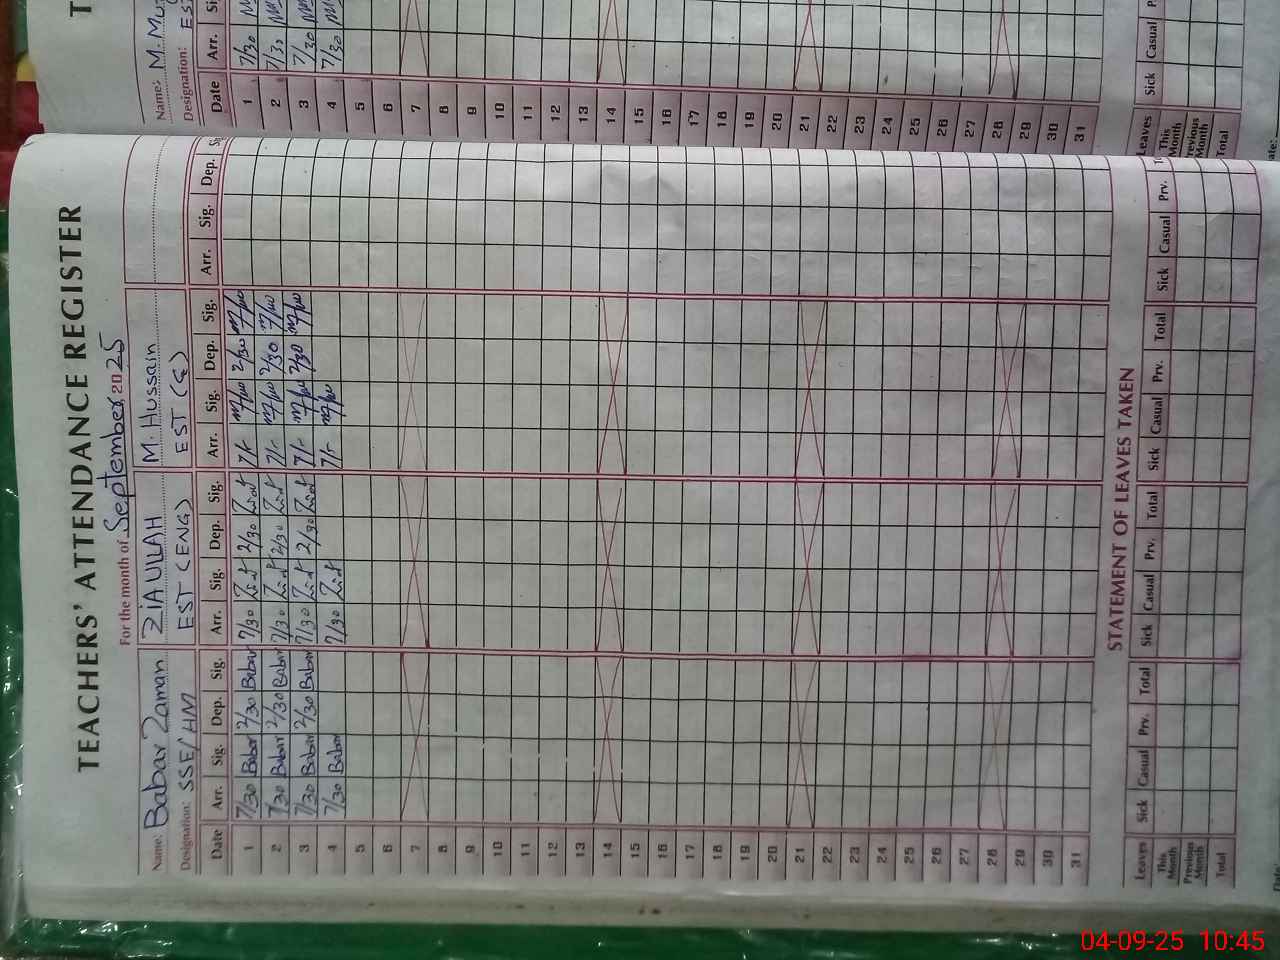 TEACHERS' ATTENDANCE REGISTER
For the month of September 2025
Name: Babar Zaman ZIA ULLAH M. Hussain
Designation: SSE/HM EST (ENG) EST
Date Arr. Sig. Dep. Sig. Arr. Sig. Dep. Sig. Arr. Sig. Dep. Sig. Arr. Sig. Dep.
1 7/30 Babar 2/30 Babar 7/30 2/30 7/- 2/30
2 7/30 Babar 2/30 Babar 7/30 2/30 7/- 2/30
3 7/30 Babar 2/30 Babar 7/30 2/30 7/- 2/30
4 7/30 Babar 7/30 7/-
5
6
7
8
9
10
11
12
13
14
15
16
17
18
19
20
21
22
23
24
25
26
27
28
29
30
31
STATEMENT OF LEAVES TAKEN
Leaves Sick Casual Prv. Total Sick Casual Prv. Total Sick Casual Prv. Total Sick Casual Prv.
This Month
Previous Month
Total
Name: M.
Designation:
Date Arr.
1 7/30
2 7/30
3 7/30
4 7/30
5
6
7
8
9
10
11
12
13
14
15
16
17
18
19
20
21
22
23
24
25
26
27
28
29
30
31
Leaves Sick Casual
This Month
Previous Month
Total
04-09-25 10:45